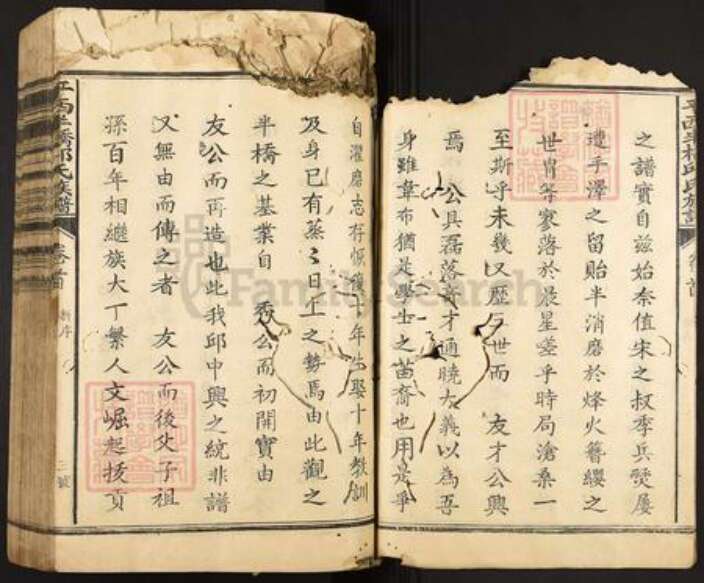 之譜實自茲始奈值宋之叔季兵燹屢
遭手澤之留貽半消磨於烽火簪纓之
世冑等寥落於晨星嗟乎時局滄桑一
至斯乎未幾又歷三世而 友才公興
焉 公具磊落奇才通曉大義以為吾
身雖韋布猶是學士之苗裔也用是乎
自濯磨志存恢復十年生娶十年教訓
及身已有蒸々日上之勢焉由此觀之
半橋之基業自 秀公而初開實由
友公而再造也此我邱中興之統非譜
又無由而傳之者 友公而後父子祖
孫百年相繼族大丁繁人文崛起拔貢
江西半橋邱氏族譜
卷首
新序
三號
卷首
FamilySearch